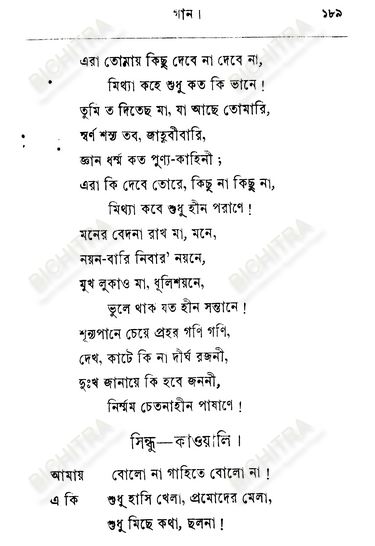 গান ।
১৮৯
এরা তোমায় কিছু দেবে না দেবে না,
মিথ্যা কহে শুধু কত কি ভানে !
তুমি ত দিতেছ মা, যা আছে তোমারি,
স্বর্ণ শস্য তব, জাহ্নবীবারি,
জ্ঞান ধর্ম্ম কত পুণ্য-কাহিনী ;
এরা কি দেবে তোরে, কিছু না কিছু না,
মিথ্যা কবে শুধু হীন পরাণে !
মনের বেদনা রাখ মা, মনে,
নয়ন-বারি নিবার' নয়নে,
মুখ লুকাও মা, ধূলিশয়নে,
ভুলে থাক যত হীন সন্তানে !
শূন্যপানে চেয়ে প্রহর গণি গণি,
দেখ, কাটে কি না দীর্ঘ রজনী,
দুঃখ জানায়ে কি হবে জননী,
নির্ম্মম চেতনাহীন পাষাণে !
সিন্ধু—কাওয়ালি ।
আমায় বোলো না গাহিতে বোলো না !
এ কি শুধু হাসি খেলা, প্রমোদের মেলা,
শুধু মিছে কথা, ছলনা !
BICHITRA